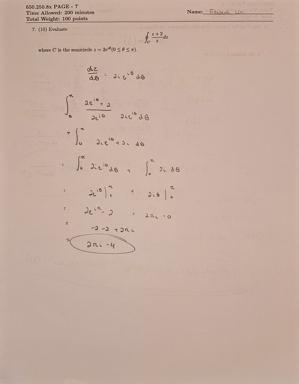 650.250.8x PAGE - 7
Time Allowed: 200 minutes
Total Weight: 100 points
Name:
7. (10) Evaluate
∮_C (z+2)/z dz
where C is the semicircle z = 2e^{iθ} (0 ≤ θ ≤ π).
dz/dθ = 2ie^{iθ} dθ
∫_0^π (2e^{iθ} + 2)/(2e^{iθ}) 2ie^{iθ} dθ
= ∫_0^π 2ie^{iθ} + 2i dθ
= ∫_0^π 2ie^{iθ} dθ + ∫_0^π 2i dθ
= 2e^{iθ} |_0^π + 2iθ |_0^π
= 2e^{iπ} - 2 + 2πi - 0
= -2 - 2 + 2πi
= 2πi - 4